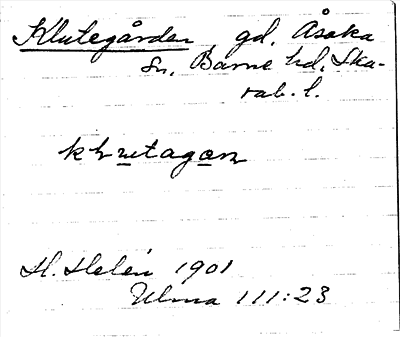 Klutegården gd. Åsaka
sn, Barne hd, Ska-
rab. l.
H. Helén 1901
Ulma 111:23